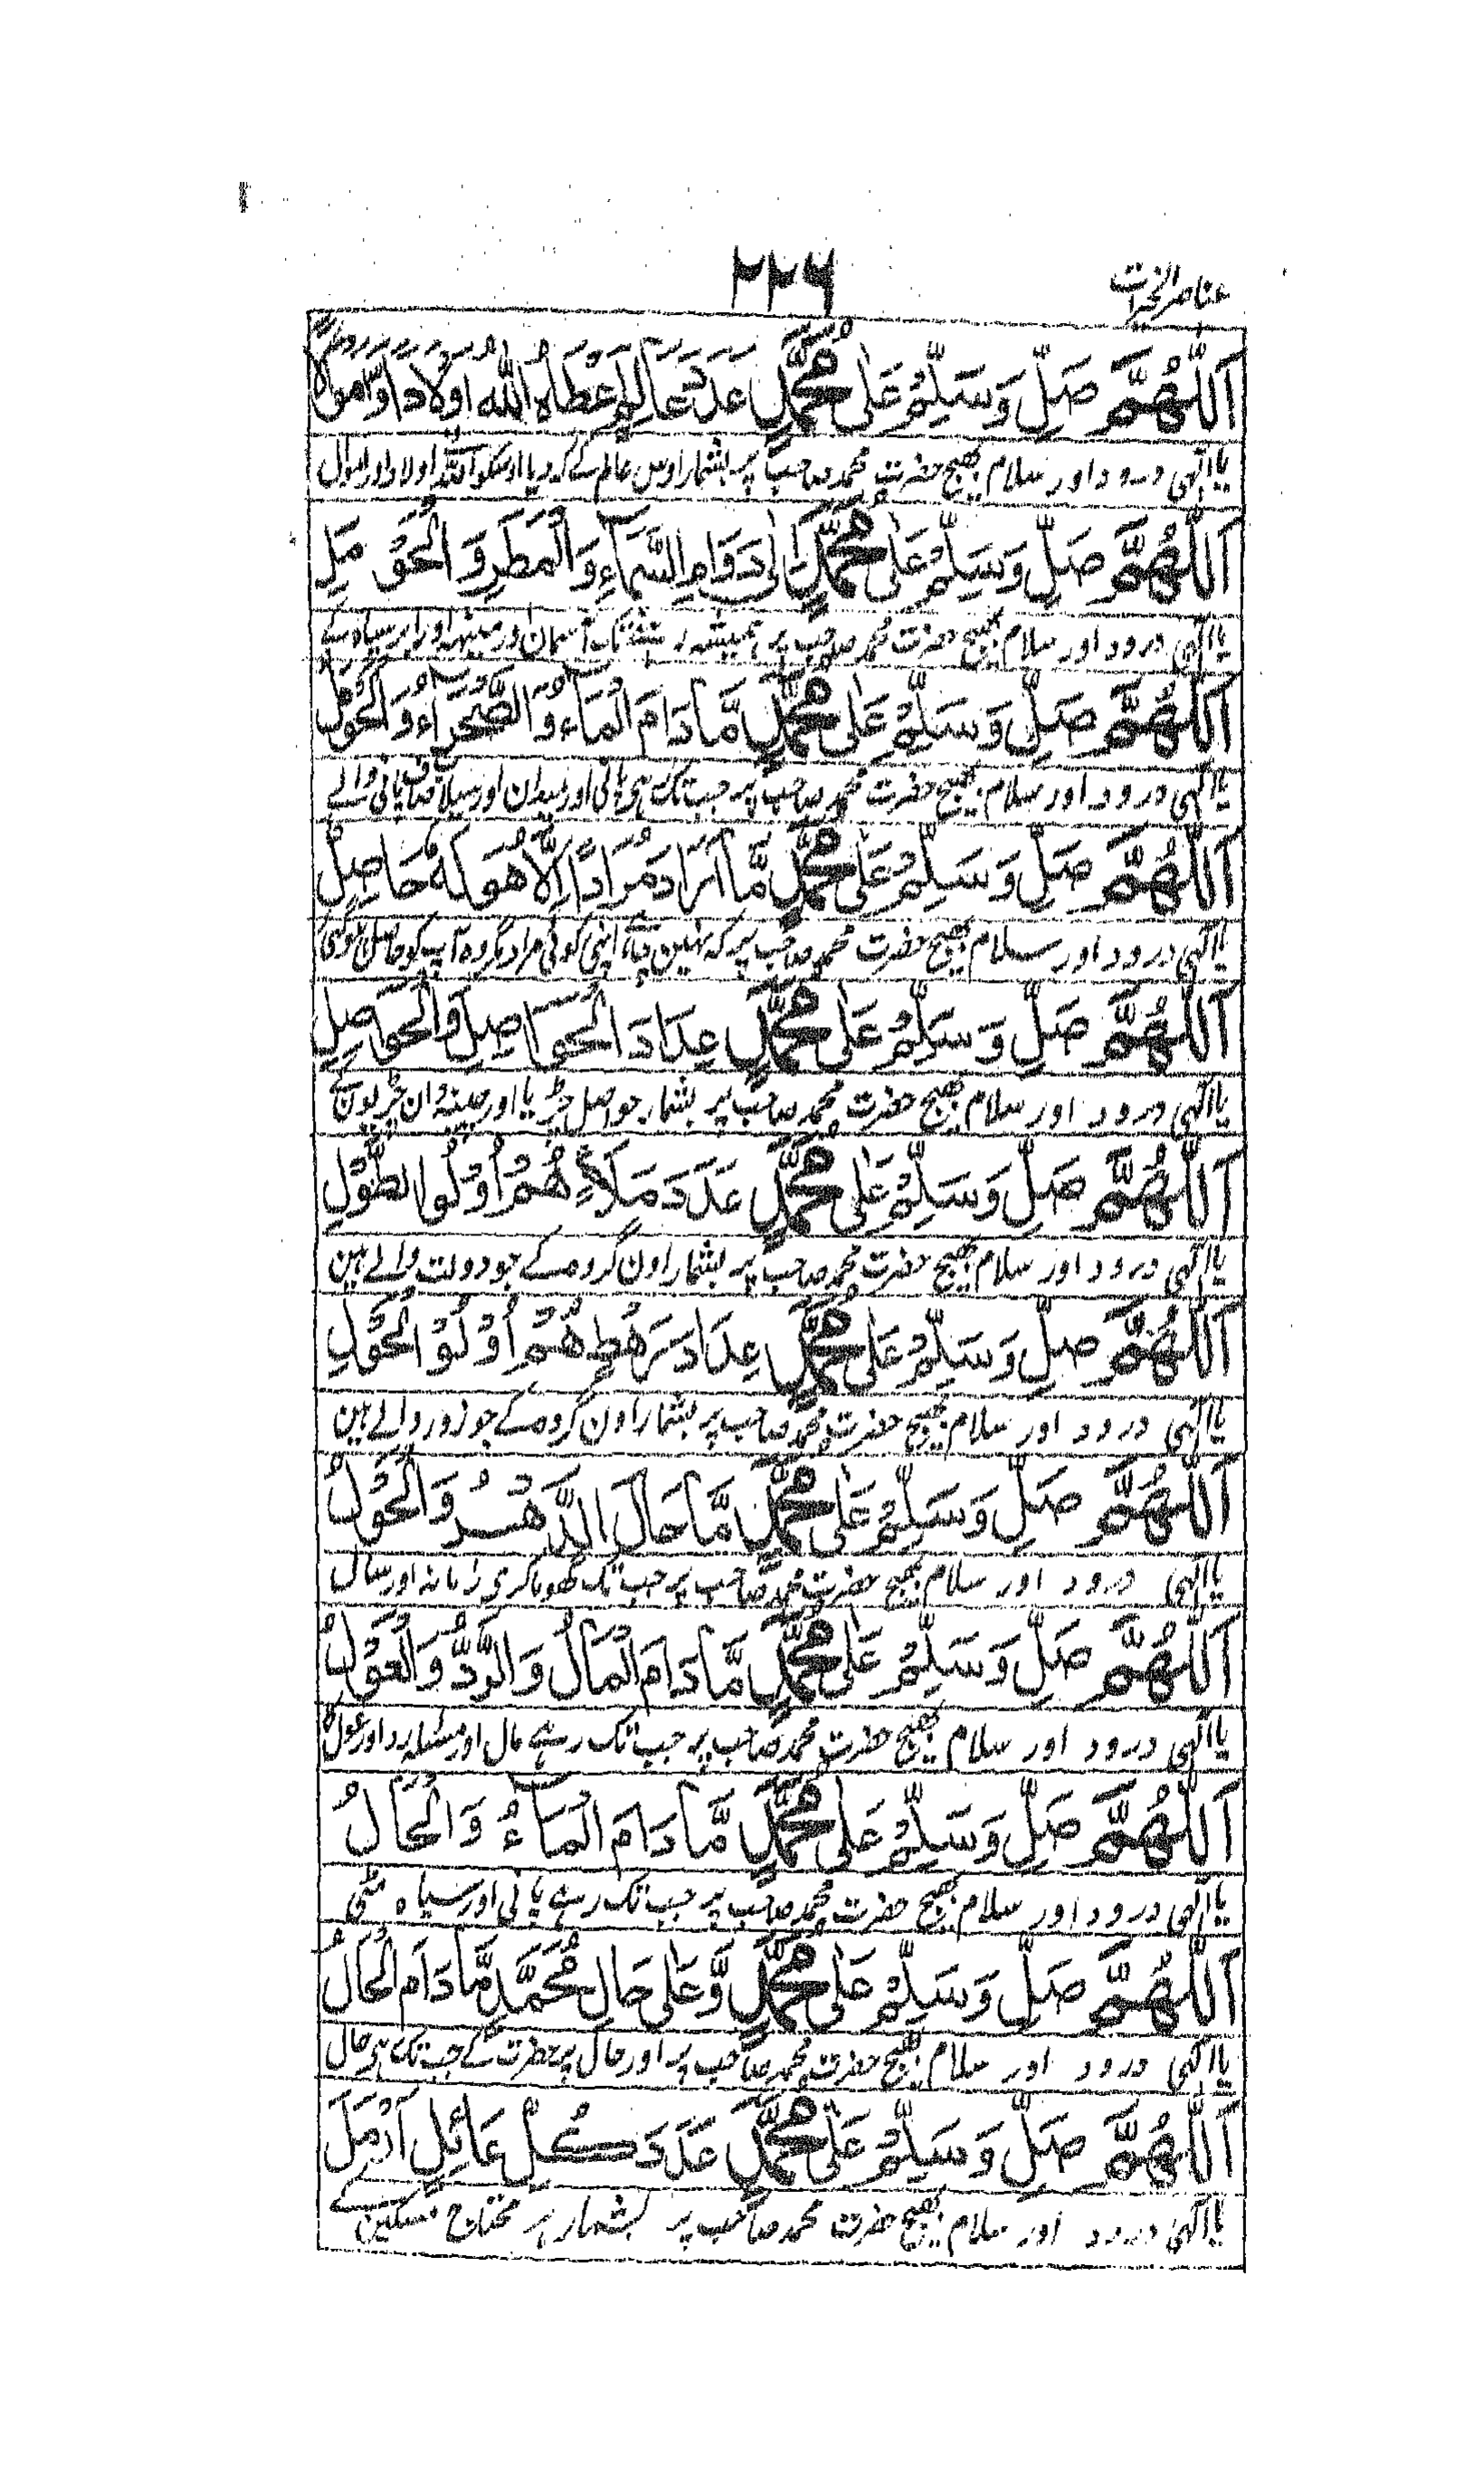 عناصر الخیرات
۲۲۶
اَللّٰهُمَّ صَلِّ وَسَلِّمْ عَلٰی مُحَمَّدٍ عَدَدَ عَالَمٍ اَعْطَاهُ اللّٰهُ اَوْلَادًا وَّاَمْوَالًا
یا الٰہی درود اور سلام بھیج حضرت محمد صاحب پر بشمار اوس عالم کے کہ دیا اوسکو اللہ نے اولاد اور اموال
اَللّٰهُمَّ صَلِّ وَسَلِّمْ عَلٰی مُحَمَّدٍ اِلٰی دَوَامِ السَّمَآءِ وَالْمَطَرِ وَالْحَوْمَلِ
یا الٰہی درود اور سلام بھیج حضرت محمد صاحب پر ہمیشہ رہنے تک آسمان اور مینہہ اور ابر سیاہ کے
اَللّٰهُمَّ صَلِّ وَسَلِّمْ عَلٰی مُحَمَّدٍ مَّا دَامَ الْمَآءُ وَالصَّحْرَآءُ وَالْحَوْمَلُ
یا الٰہی درود اور سلام بھیج حضرت محمد صاحب پر جب تک ہی پانی اور میدان اور سیلاب صاف پانی والے
اَللّٰهُمَّ صَلِّ وَسَلِّمْ عَلٰی مُحَمَّدٍ مَّا اَرَادَ مُرَادًا اِلَّا هُوَ لَهٗ حَاصِلٌ
یا الٰہی درود اور سلام بھیج حضرت محمد صاحب پر کہ نہین چاہے اپنی کوئی مراد مگر وہ آپ کو حاصل ہوگئی
اَللّٰهُمَّ صَلِّ وَسَلِّمْ عَلٰی مُحَمَّدٍ عِدَادَ الْحَوَاصِلِ وَالْحَوَاصِلِ
یا الٰہی درود اور سلام بھیج حضرت محمد صاحب پر بشمار حواصل چڑیا اور سینہ دان چڑیون کے
اَللّٰهُمَّ صَلِّ وَسَلِّمْ عَلٰی مُحَمَّدٍ عَدَدَ مَلَاءٍ هُمْ اُوْلُوا الطَّوْلِ
یا الٰہی درود اور سلام بھیج حضرت محمد صاحب پر بشمار اون گروہ کے جو دولت والے ہین
اَللّٰهُمَّ صَلِّ وَسَلِّمْ عَلٰی مُحَمَّدٍ عِدَادَ رَهْطٍ هُمْ اُوْلُوْ الْحَوْلِ
یا الٰہی درود اور سلام بھیج حضرت محمد صاحب پر بشمار اون گروہ کے جو زور والے ہین
اَللّٰهُمَّ صَلِّ وَسَلِّمْ عَلٰی مُحَمَّدٍ مَّا حَالَ الدَّهْرُ وَالْحَوْلُ
یا الٰہی درود اور سلام بھیج حضرت محمد صاحب پر جب تک گھوما کری زمانہ اور سال
اَللّٰهُمَّ صَلِّ وَسَلِّمْ عَلٰی مُحَمَّدٍ مَّا دَامَ الْمَالُ وَالرَّدُّ وَالْعَوْلُ
یا الٰہی درود اور سلام بھیج حضرت محمد صاحب پر جب تک رہے مال اور مسئلہ رد اور عول کا
اَللّٰهُمَّ صَلِّ وَسَلِّمْ عَلٰی مُحَمَّدٍ مَّا دَامَ الْمَآءُ وَالْحَالُ
یا الٰہی درود اور سلام بھیج حضرت محمد صاحب پر جب تک رہے پانی اور سیاہ مٹی
اَللّٰهُمَّ صَلِّ وَسَلِّمْ عَلٰی مُحَمَّدٍ وَّعَلٰی حَالِ مُحَمَّدٍ مَّا دَامَ الْحَالُ
یا الٰہی درود اور سلام بھیج حضرت محمد صاحب پر اور حال پر حضرت کے جب تک ہی حال
اَللّٰهُمَّ صَلِّ وَسَلِّمْ عَلٰی مُحَمَّدٍ عَدَدَ كُلِّ عَائِلٍ اَرْمَلَ
یا الٰہی درود اور سلام بھیج حضرت محمد صاحب پر بشمار ہر محتاج مسکین کے